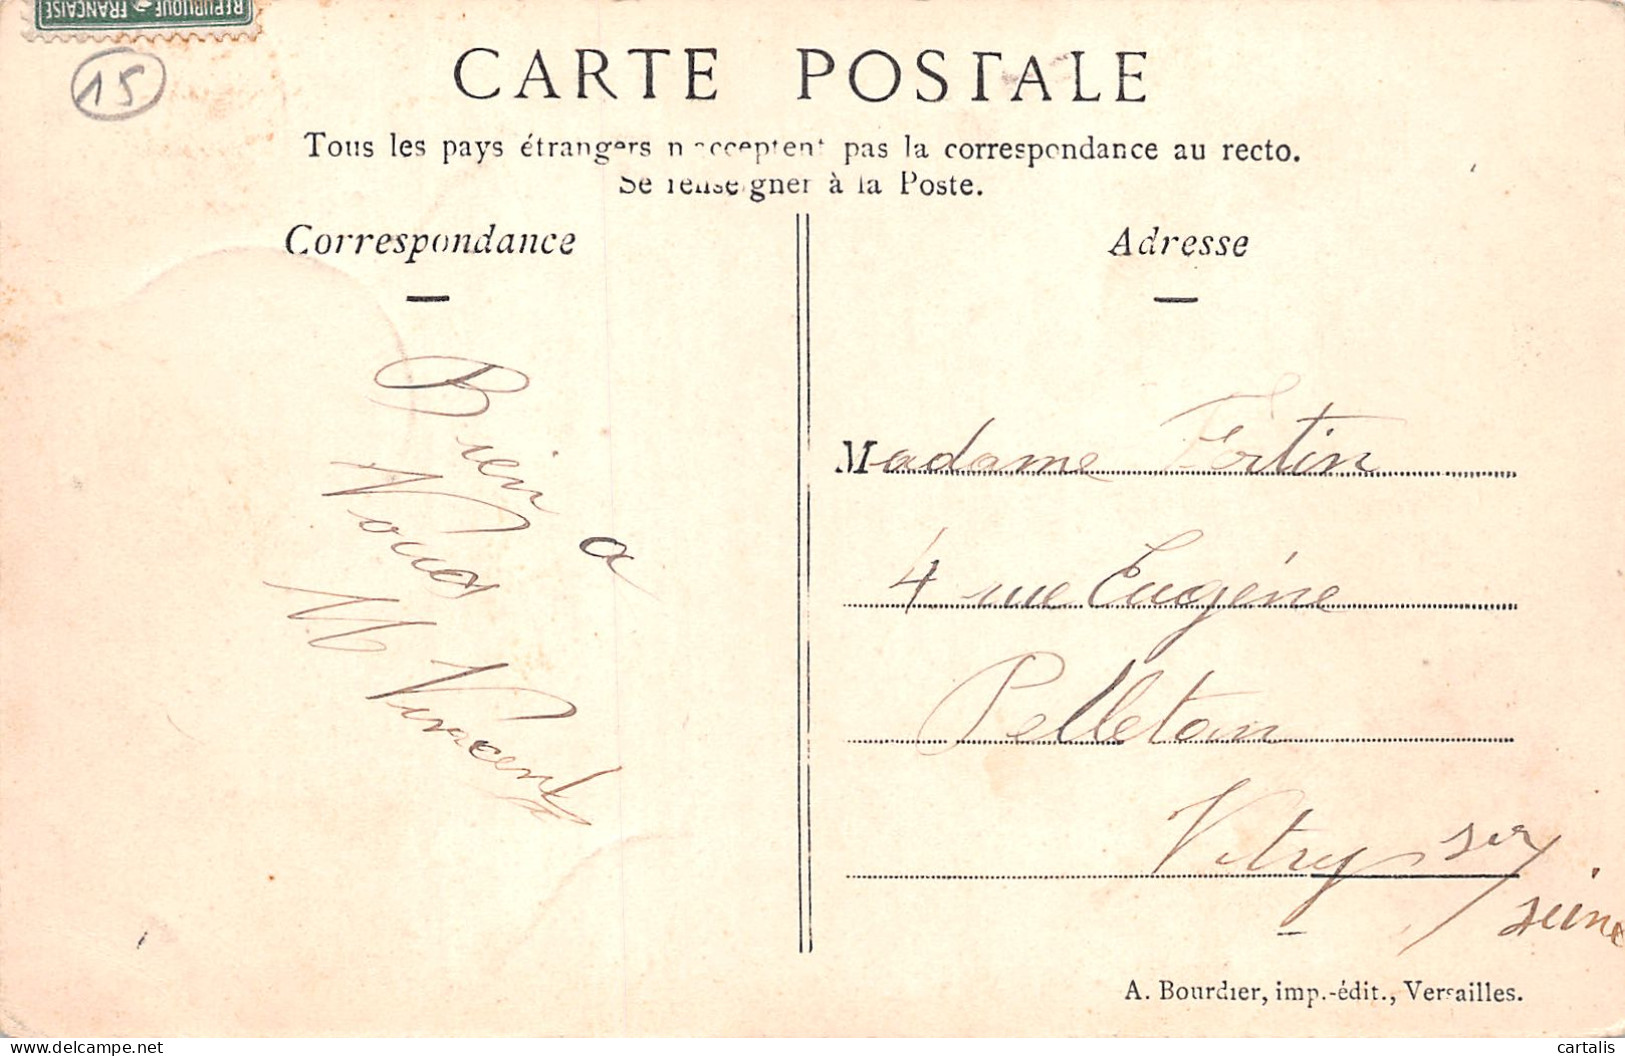 REPUBLIQUE FRANÇAISE
15
CARTE POSTALE
Tous les pays étrangers n'acceptent pas la correspondance au recto.
Se renseigner à la Poste.
Correspondance
Bien a
Vous
M Vincent
Adresse
Madame Fortin
4 rue Eugène
Pelletan
Vitry sur
seine
A. Bourdier, imp.-édit., Versailles.
delcampe.net
cartalis